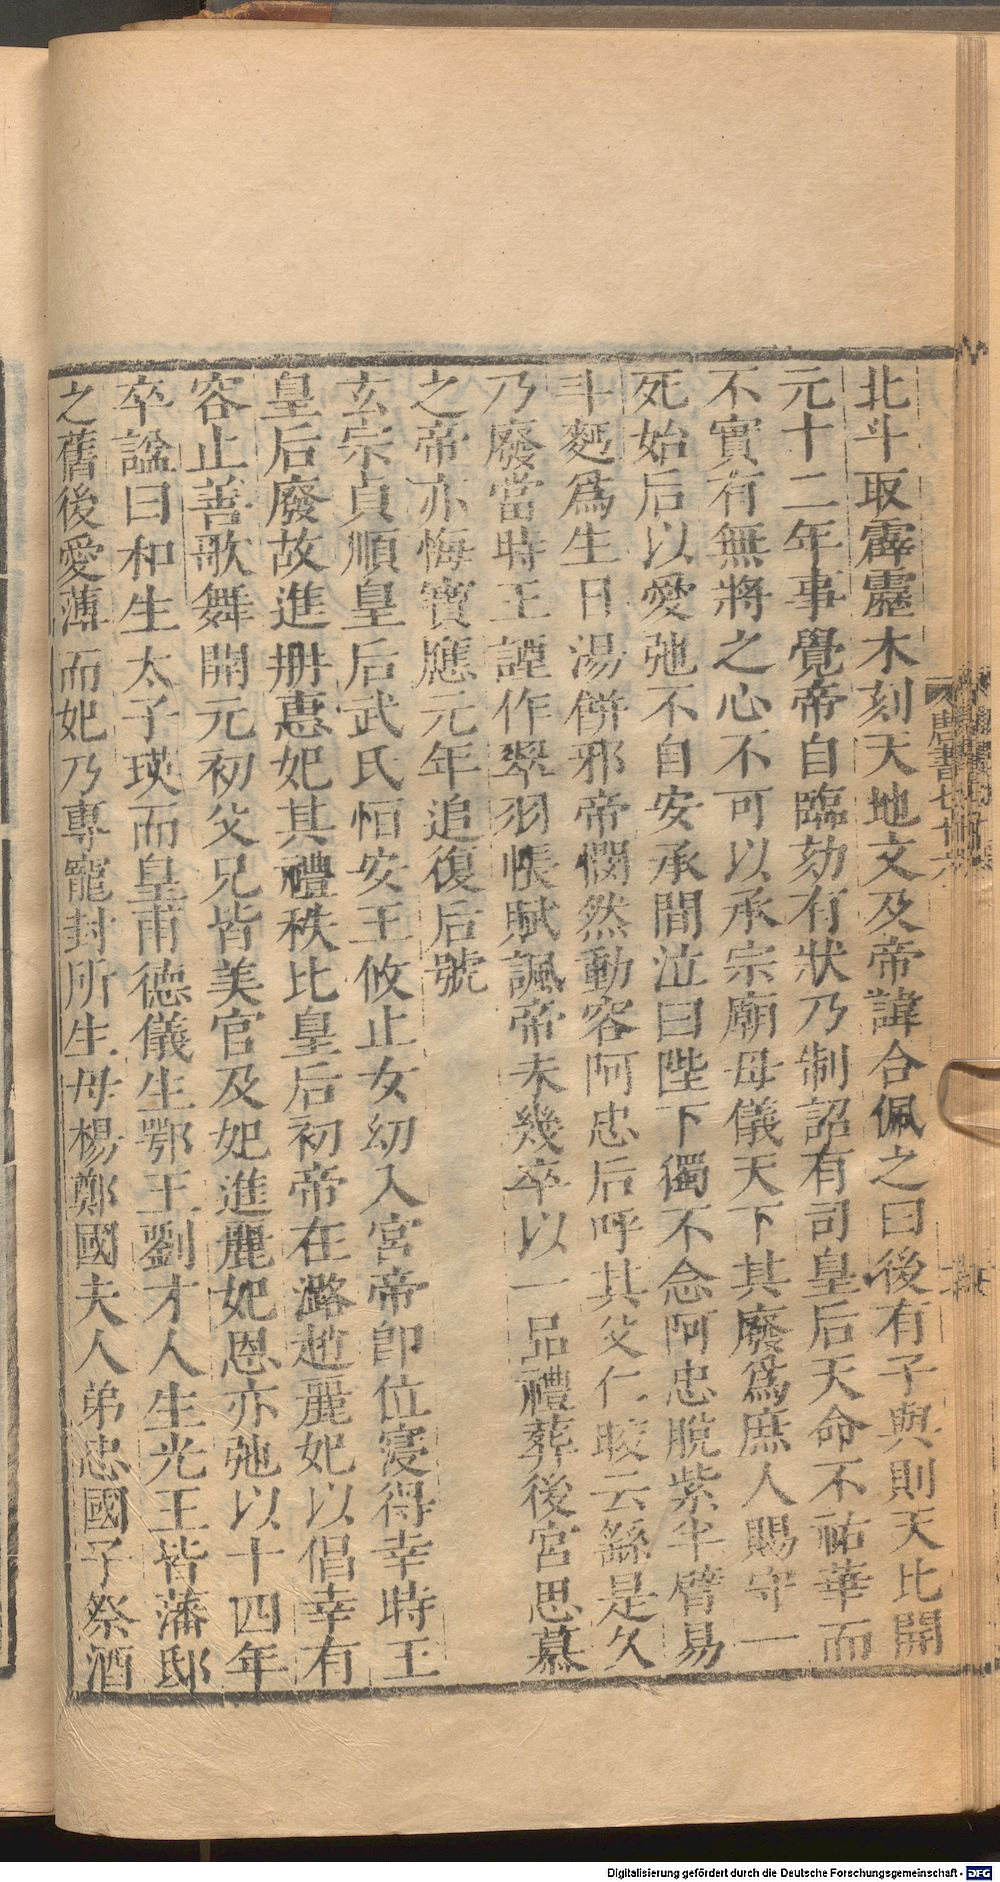 北斗取霹靂木刻天地文及帝諱合佩之曰後有子與則天比開
元十二年事覺帝自臨劾有狀乃制詔有司皇后天命不祐華而
不實有無將之心不可以承宗廟母儀天下其廢爲庶人賜守一
死始后以愛弛不自安承間泣曰陛下獨不念阿忠脫紫半臂易
斗麪爲生日湯餅邪帝憫然動容阿忠后呼其父仁皎云繇是久
乃廢當時王諲作翠羽帳賦諷帝未幾卒以一品禮葬後宮思慕
之帝亦悔寳應元年追復后號
玄宗貞順皇后武氏恒安王攸止女幼入宮帝即位寖得幸時王
皇后廢故進册惠妃其禮秩比皇后初帝在潞趙麗妃以倡幸有
容止善歌舞開元初父兄皆美官及妃進麗妃恩亦弛以十四年
卒諡曰和生太子瑛而皇甫德儀生鄂王劉才人生光王皆藩邸
之舊後愛薄而妃乃專寵封所生母楊鄭國夫人弟忠國子祭酒
唐書七十六
Digitalisierung gefördert durch die Deutsche Forschungsgemeinschaft - DFG